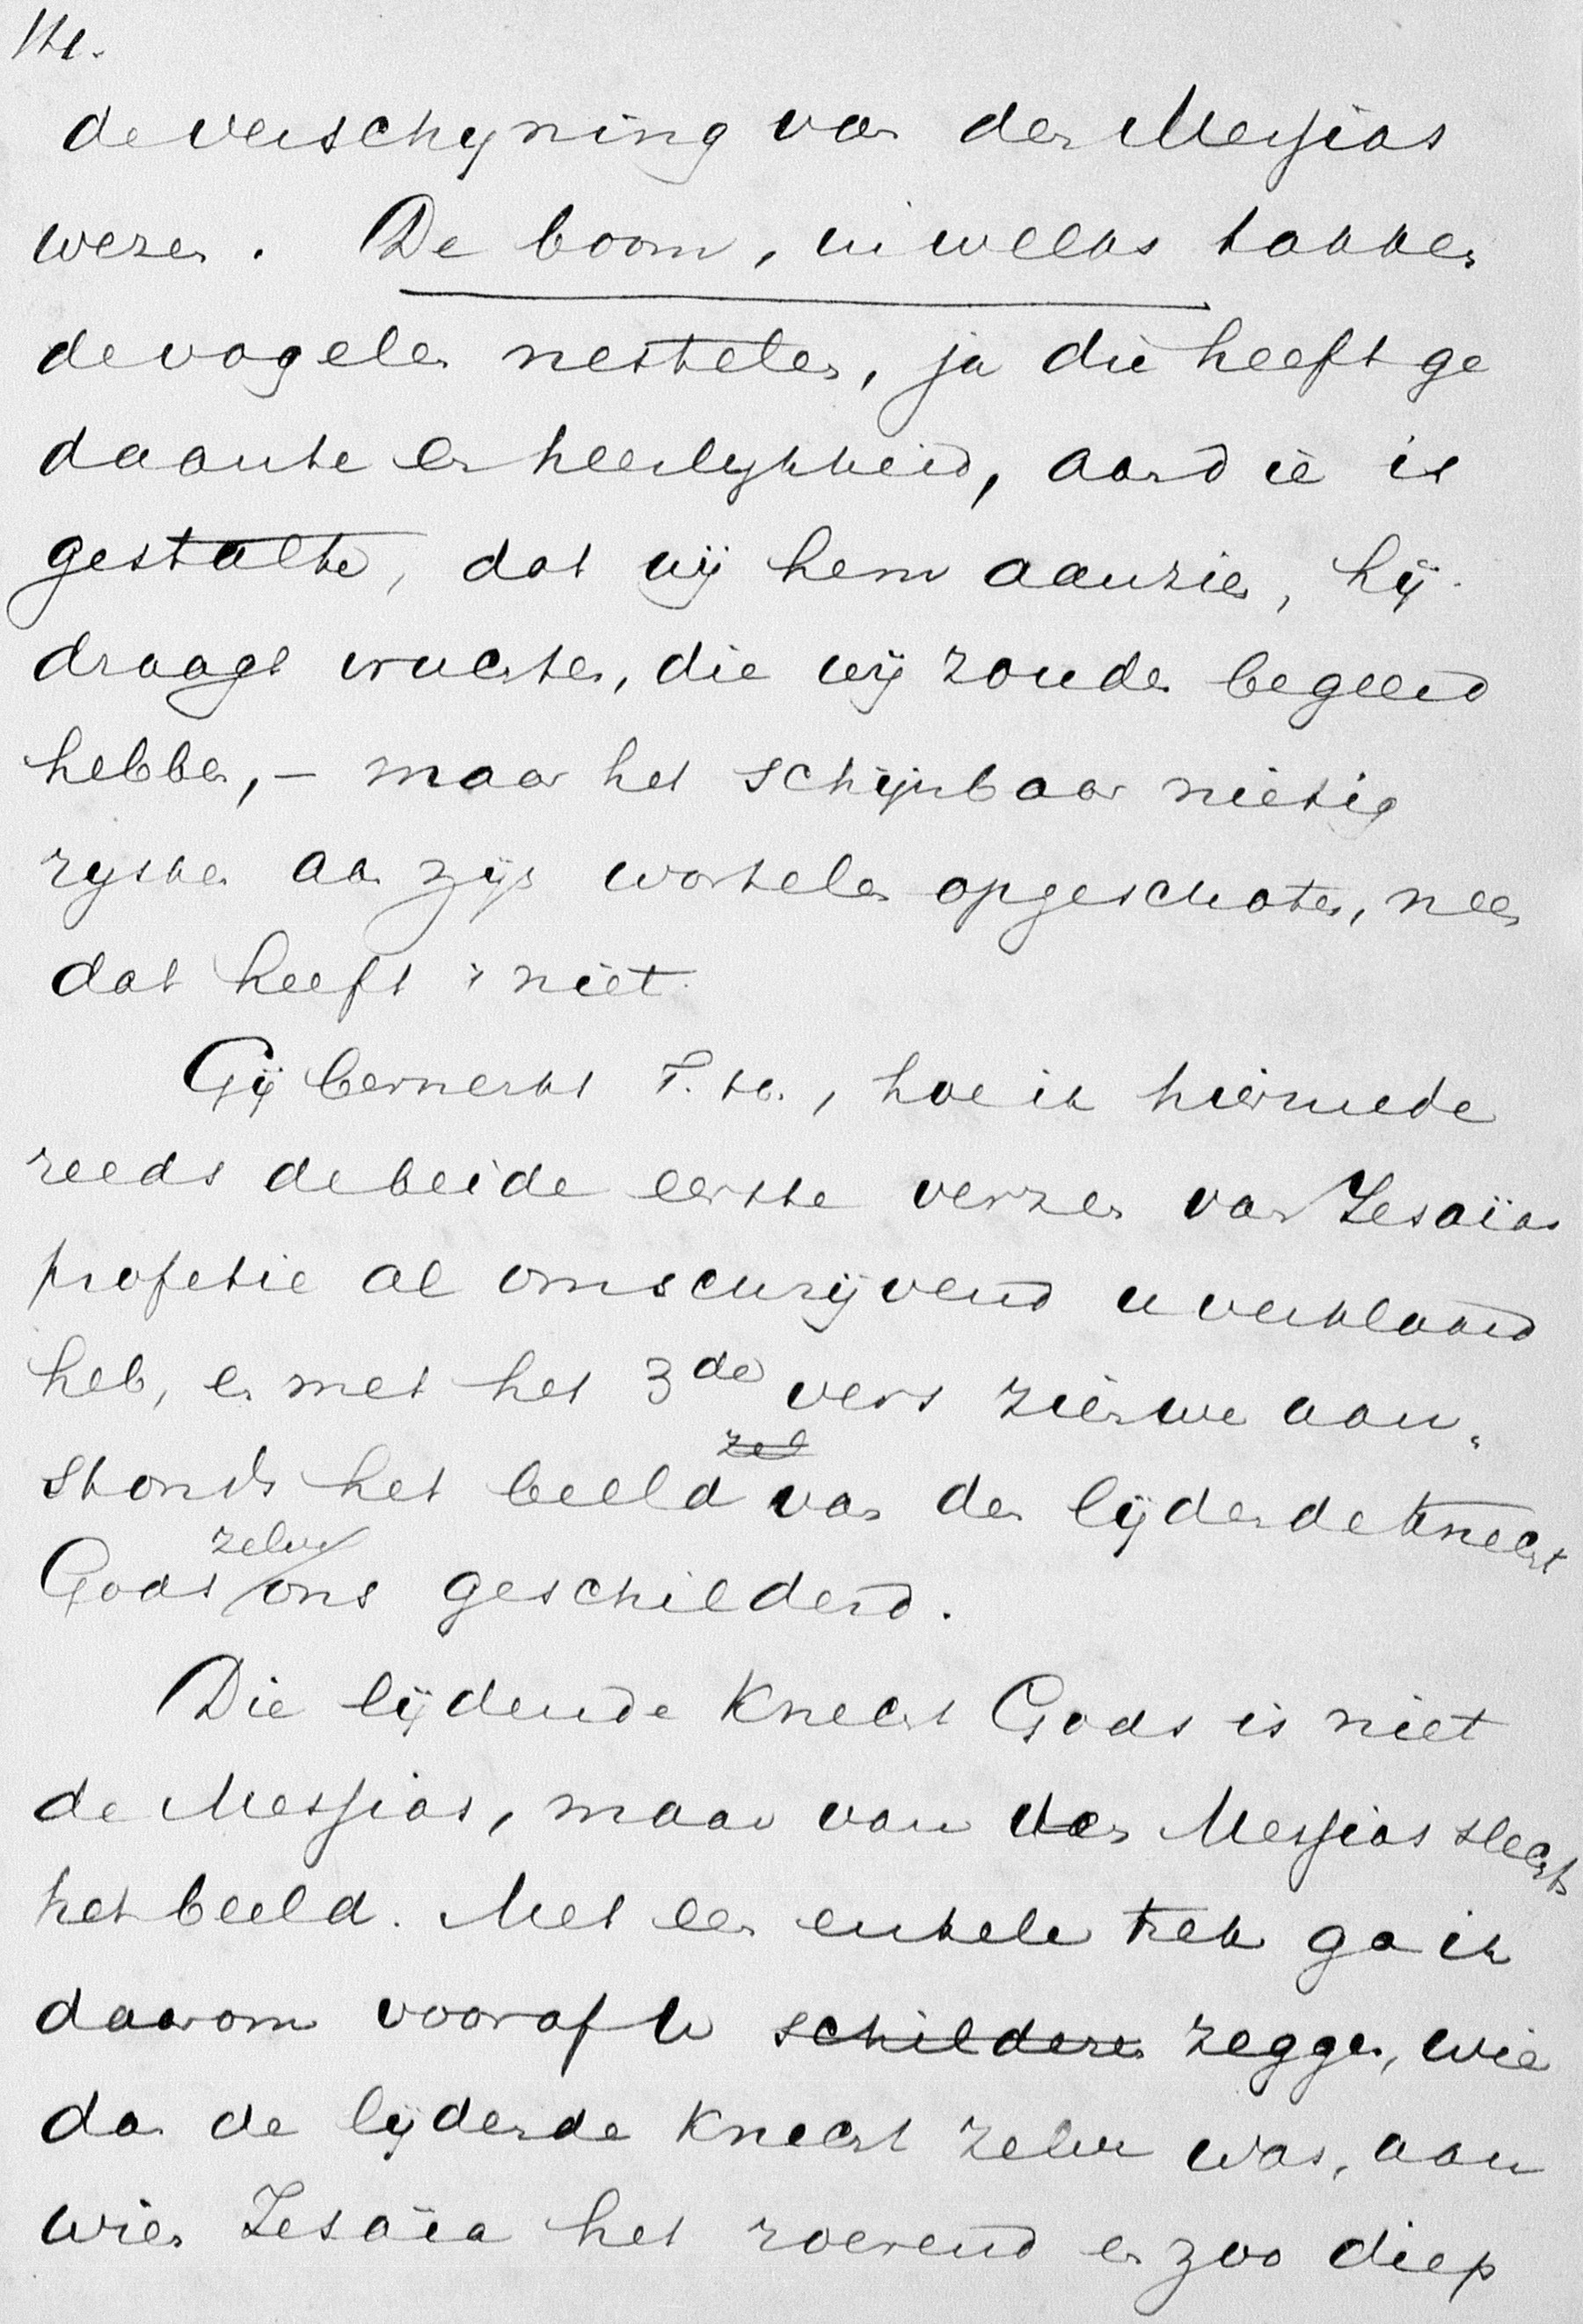 14.
de verschyning van den Messias
wezen. De boom, in welks takken
de vogelen nestelen, ja die heeft ge
daante en heerlykheid, aan die is
gestalte, dat wij hem aanzien, hij
draagt vruchten, die wij zouden begeerd
hebben, – maar het schijnbaar nietig
rysken aan zijn wortelen opgeschoten, neen
dat heeft 't niet.
Gij bemerkt T. h., hoe ik hiermede
reeds de beide eerste verzen van Jesaïas
profetie al omschrijvend u verklaard
heb, en met het 3de vers zien we aan-
stonds het beeld zel van den lijdende knecht
Gods zelve ons geschilderd.
Die lijdende Knecht Gods is niet
de Messias, maar van den Messias slechts
het beeld. Met een enkele trek ga ik
daarom vooraf U schilderen zeggen, wie
dan de lijdende Knecht zelve was, aan
wien Jesaïa het roerend en zoo diep